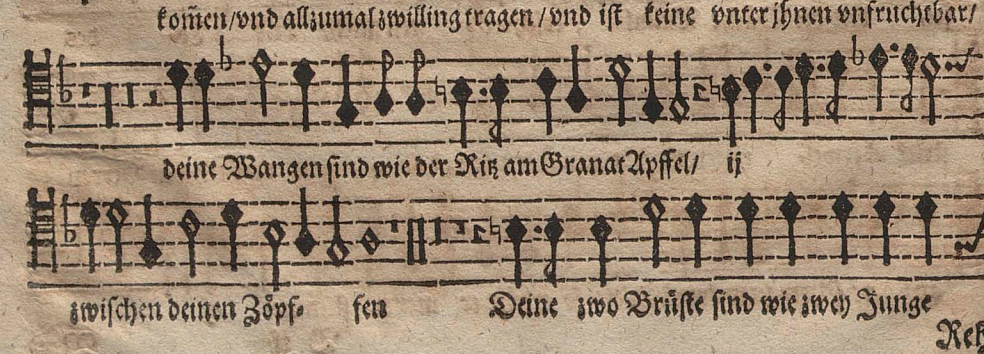 kom̃en/vnd allzumal zwilling tragen/vnd ist keine vnter jhnen vnfruchtbar/
deine Wangen sind wie der Ritz am Granat Apffel/ ij
zwischen deinen Zöpf- fen Deine zwo Brüste sind wie zwey Junge
Reh